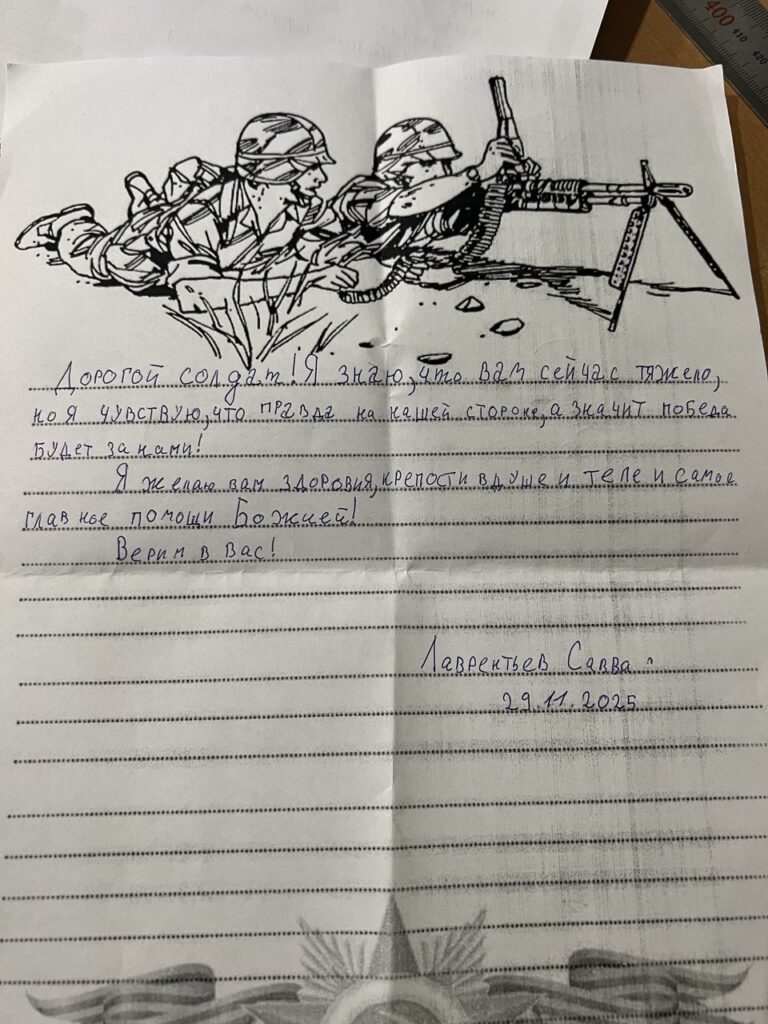 400
410
420
Дорогой солдат! Я знаю, что вам сейчас тяжело,
но я чувствую, что правда на нашей стороне, а значит победа
будет за нами!
Я желаю вам здоровия, крепости в душе и теле и самое
главное помощи Божией!
Верим в вас!
Лаврентьев Савва.
29.11.2025